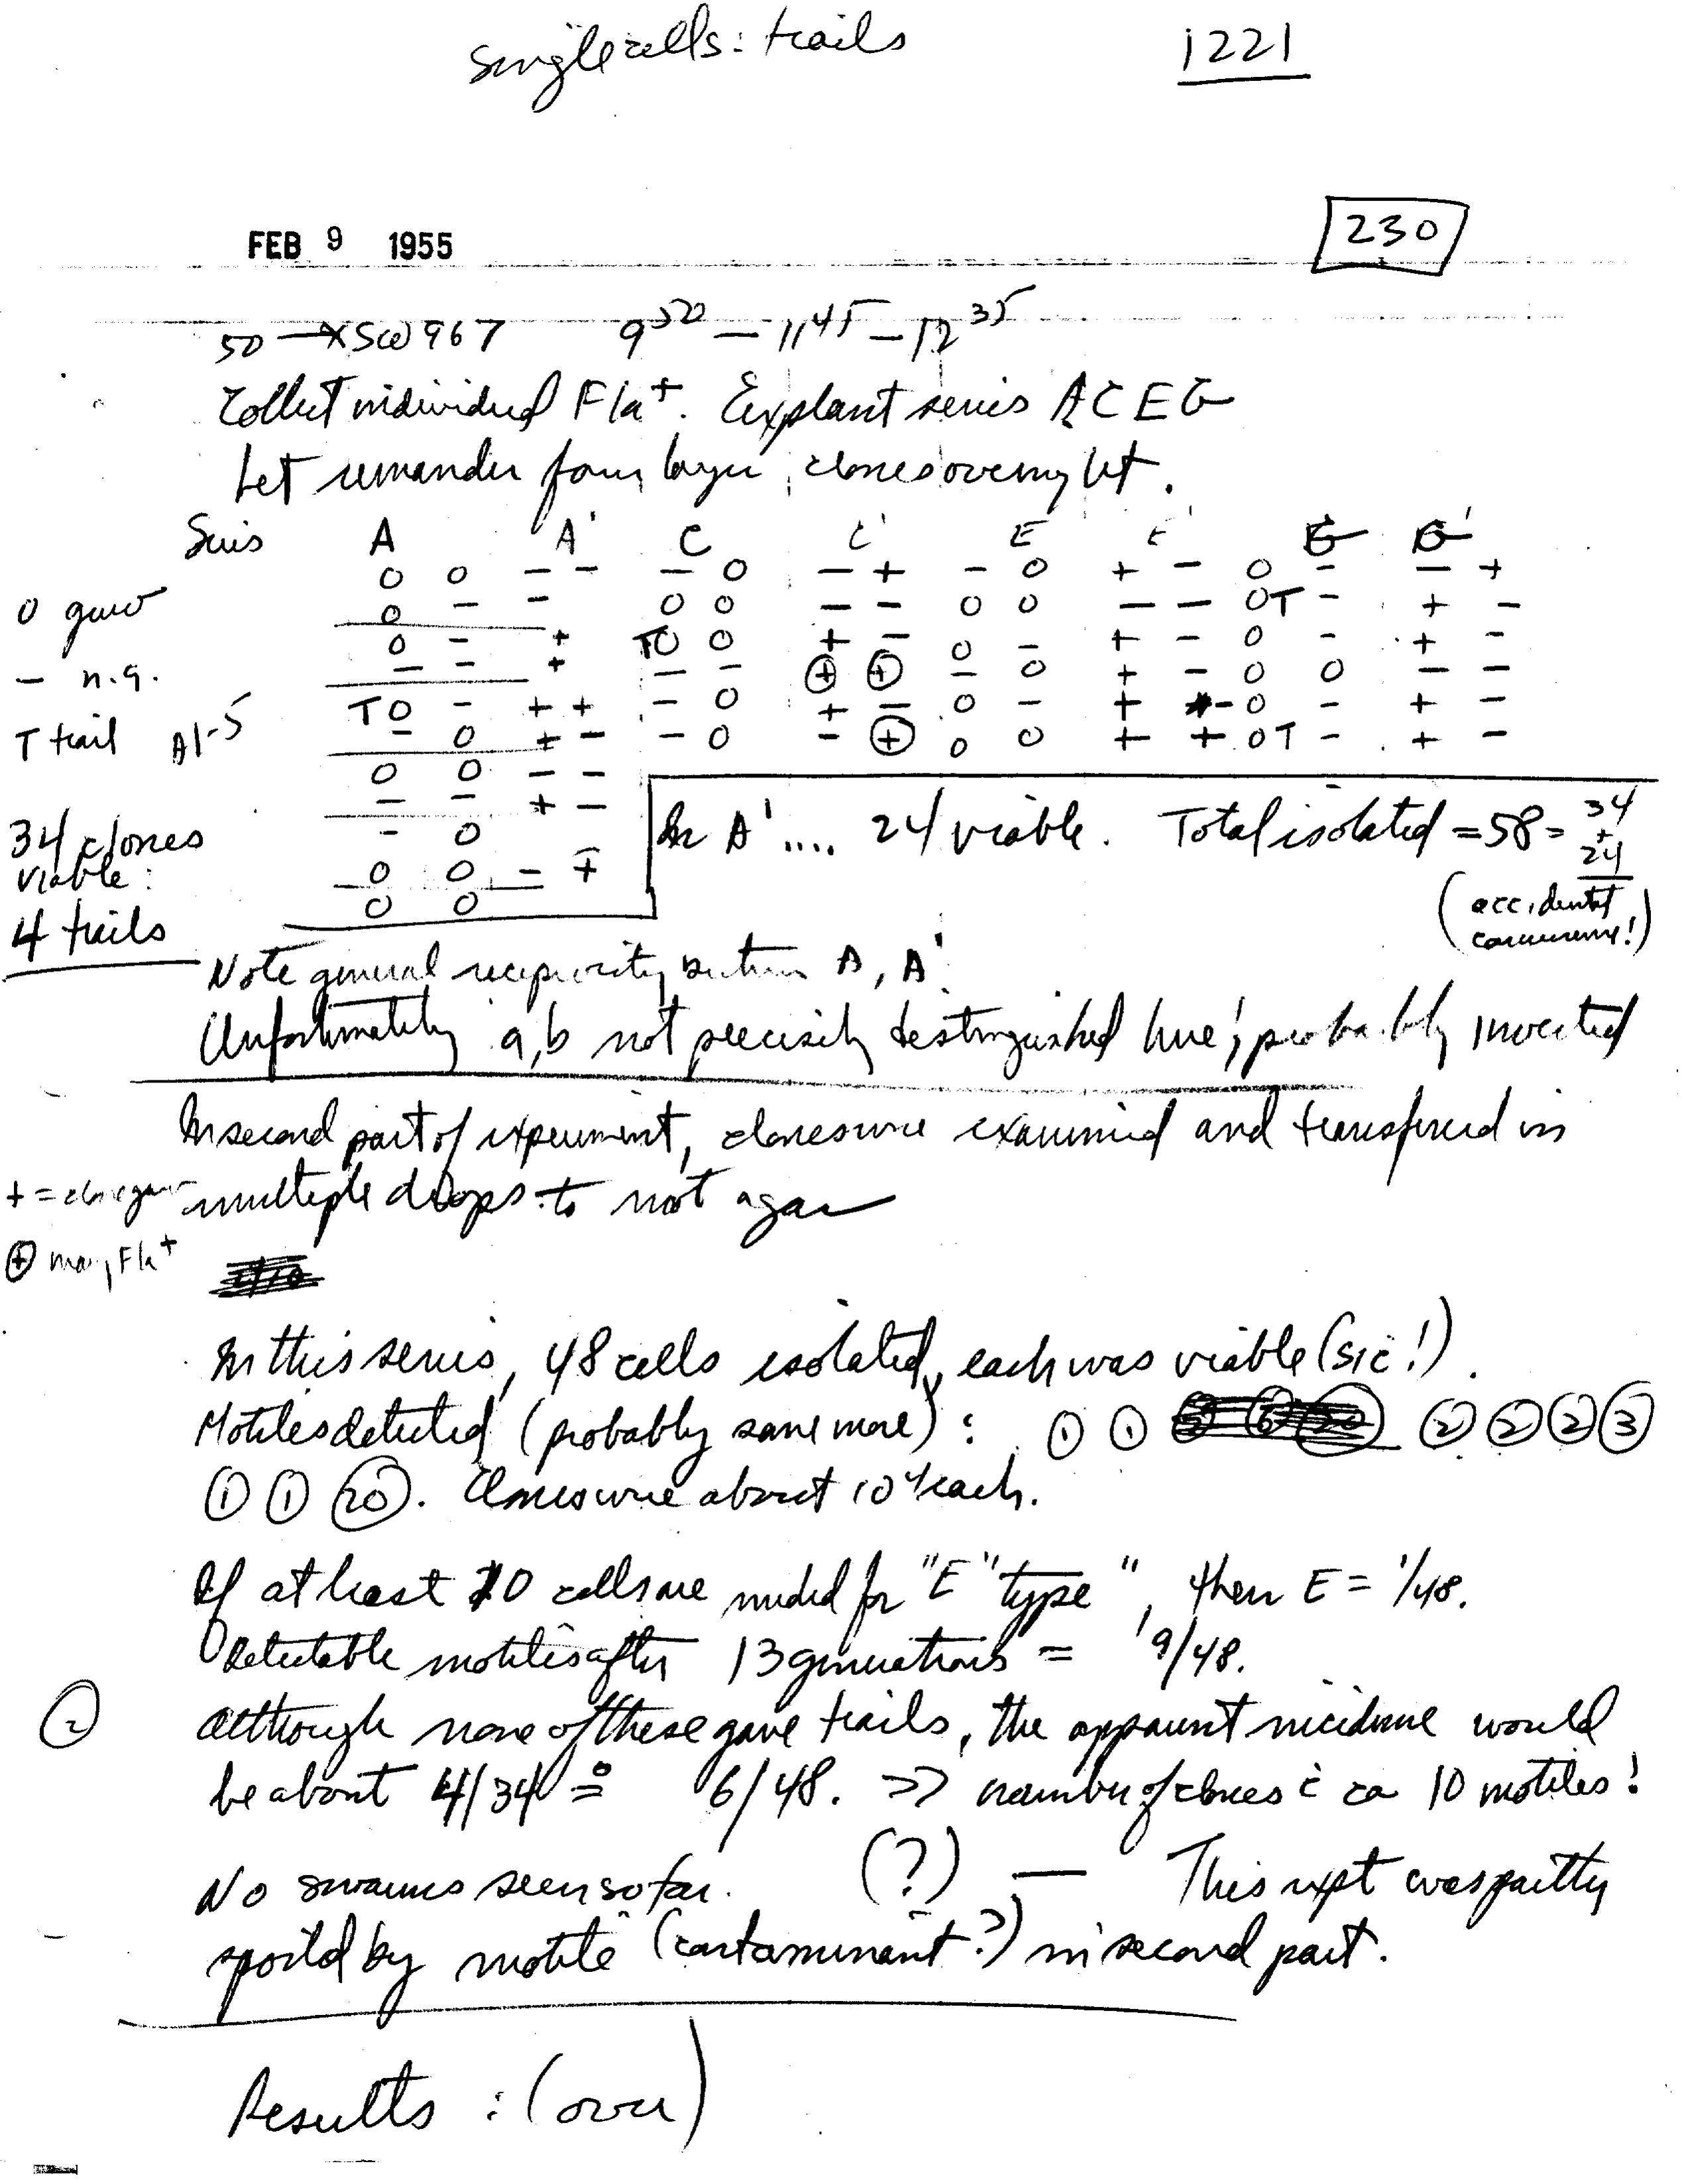 Single cells: trails 1221
FEB 9 1955 230
50 —x SW967 9 50 — 11 45 — 12 35
Collect individual Fla+. Explant series A C E G
Let remainder form large clones overnight.
Series A A' C C' E E' G G'
O O — — — O — + — O + — O — — +
O grew O — — O O — — O O — — OT — + —
O — + TO O + — O — + — O — + —
— n.g. — — + — — ⊕ ⊕ — O + — O O — —
TO — + + — O + — O — + — O — + —
T trail A1-5 — O + — — O — ⊕ O O + + OT — + —
O O — —
— — + —
34 clones — O In A' .... 24 viable. Total isolated = 58 = 34 + 24
viable: O O — +
4 trails O O (accidental concurrence!)
Note general reciprocity between A, A'
Unfortunately a, b not precisely distinguished here; probably inverted
In second part of experiment, clones were examined and transferred in
+ = clone grew multiple drops to mot agar
⊕ many Fla+
In this series, 48 cells isolated, each was viable (sic!).
Motiles detected (probably some more): ① ① ② ② ② ③
① ① ⑳. Clones were about 10^4 each.
If at least 10 cells are needed for "E" type", then E = 1/48.
Detectable motiles after 13 generations = 9/48.
Although none of these gave trails, the apparent incidence would
be about 4/34 ≗ 6/48. >> number of clones c̄ ca 10 motiles!
No swarms seen so far. (?) — This expt was partly
spoiled by motile (contaminant?) in second part.
Results: (over)